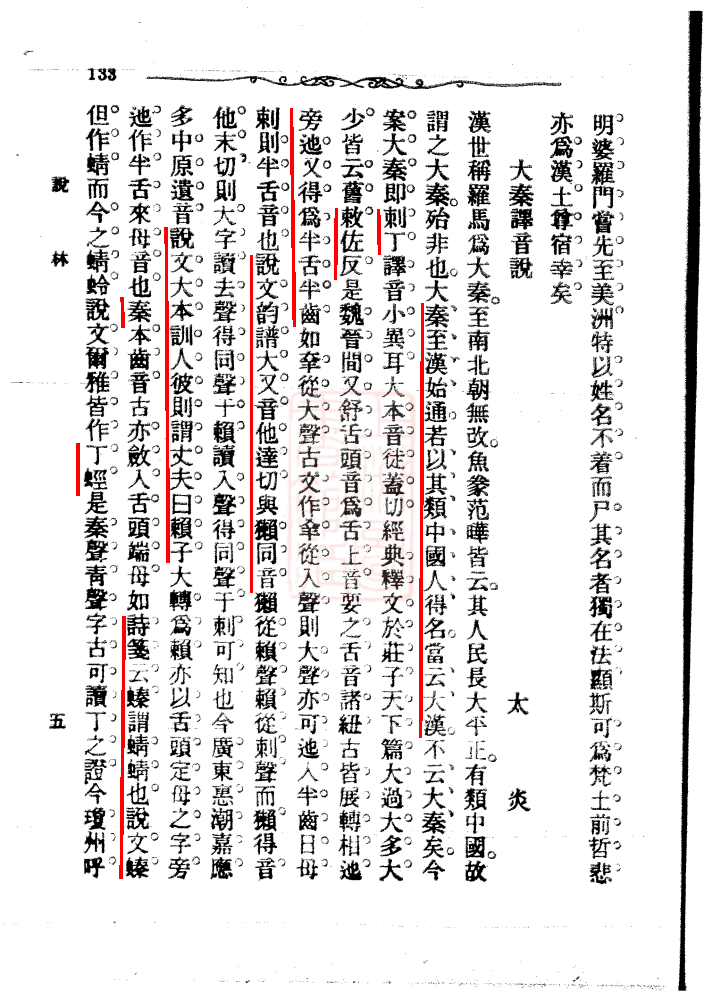 133
明婆羅門嘗先至美洲特以姓名不着而尸其名者獨在法顯斯可爲梵土前哲悲
亦爲漢土尊宿幸矣
大秦譯音說
太炎
漢世稱羅馬爲大秦。至南北朝無改魚豢范曄皆云其人民長大平正。有類中國。故
謂之大秦。殆非也。大秦至漢始通若以其類中國人得名。當云大漢。不云大秦矣。今
案大秦即剌丁譯音小異耳大本音徒蓋切經典釋文於莊子天下篇大過大多大
少皆云舊敕佐反是魏晉間又舒舌頭音爲舌上音要之舌音諸紐古皆展轉相迆
旁迆又得爲半舌半齒如羍從大聲古文作𠦒從入聲則大聲亦可迆入半齒日母
剌則半舌音也說文韵譜大又音他達切與獺同音獺從賴聲賴從剌聲而獺得音
他末切則大字讀去聲得同聲于賴讀入聲得同聲于剌可知也今廣東惠潮嘉應
多中原遺音說文大本訓人彼則謂丈夫曰賴子大轉爲賴亦以舌頭定母之字旁
迆作半舌來母音也秦本齒音古亦斂入舌頭端母如詩箋云螓謂蜻蜻也說文螓
但作蜻而今之蜻蛉說文爾雅皆作丁蛵是秦聲靑聲字古可讀丁之證今瓊州呼
說林
五